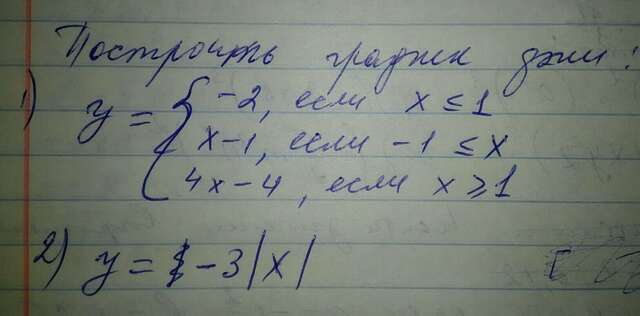 Построить график ф-ии:
1) y = { -2, если x ≤ 1
x-1, если -1 ≤ x
4x-4, если x ≥ 1
2) y = -3|x|